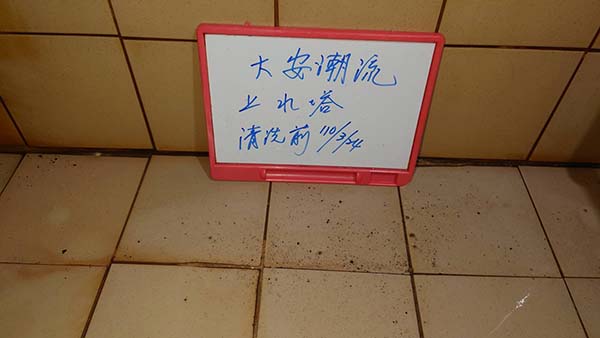 大安潮流
上水塔
清洗前 110/3/24